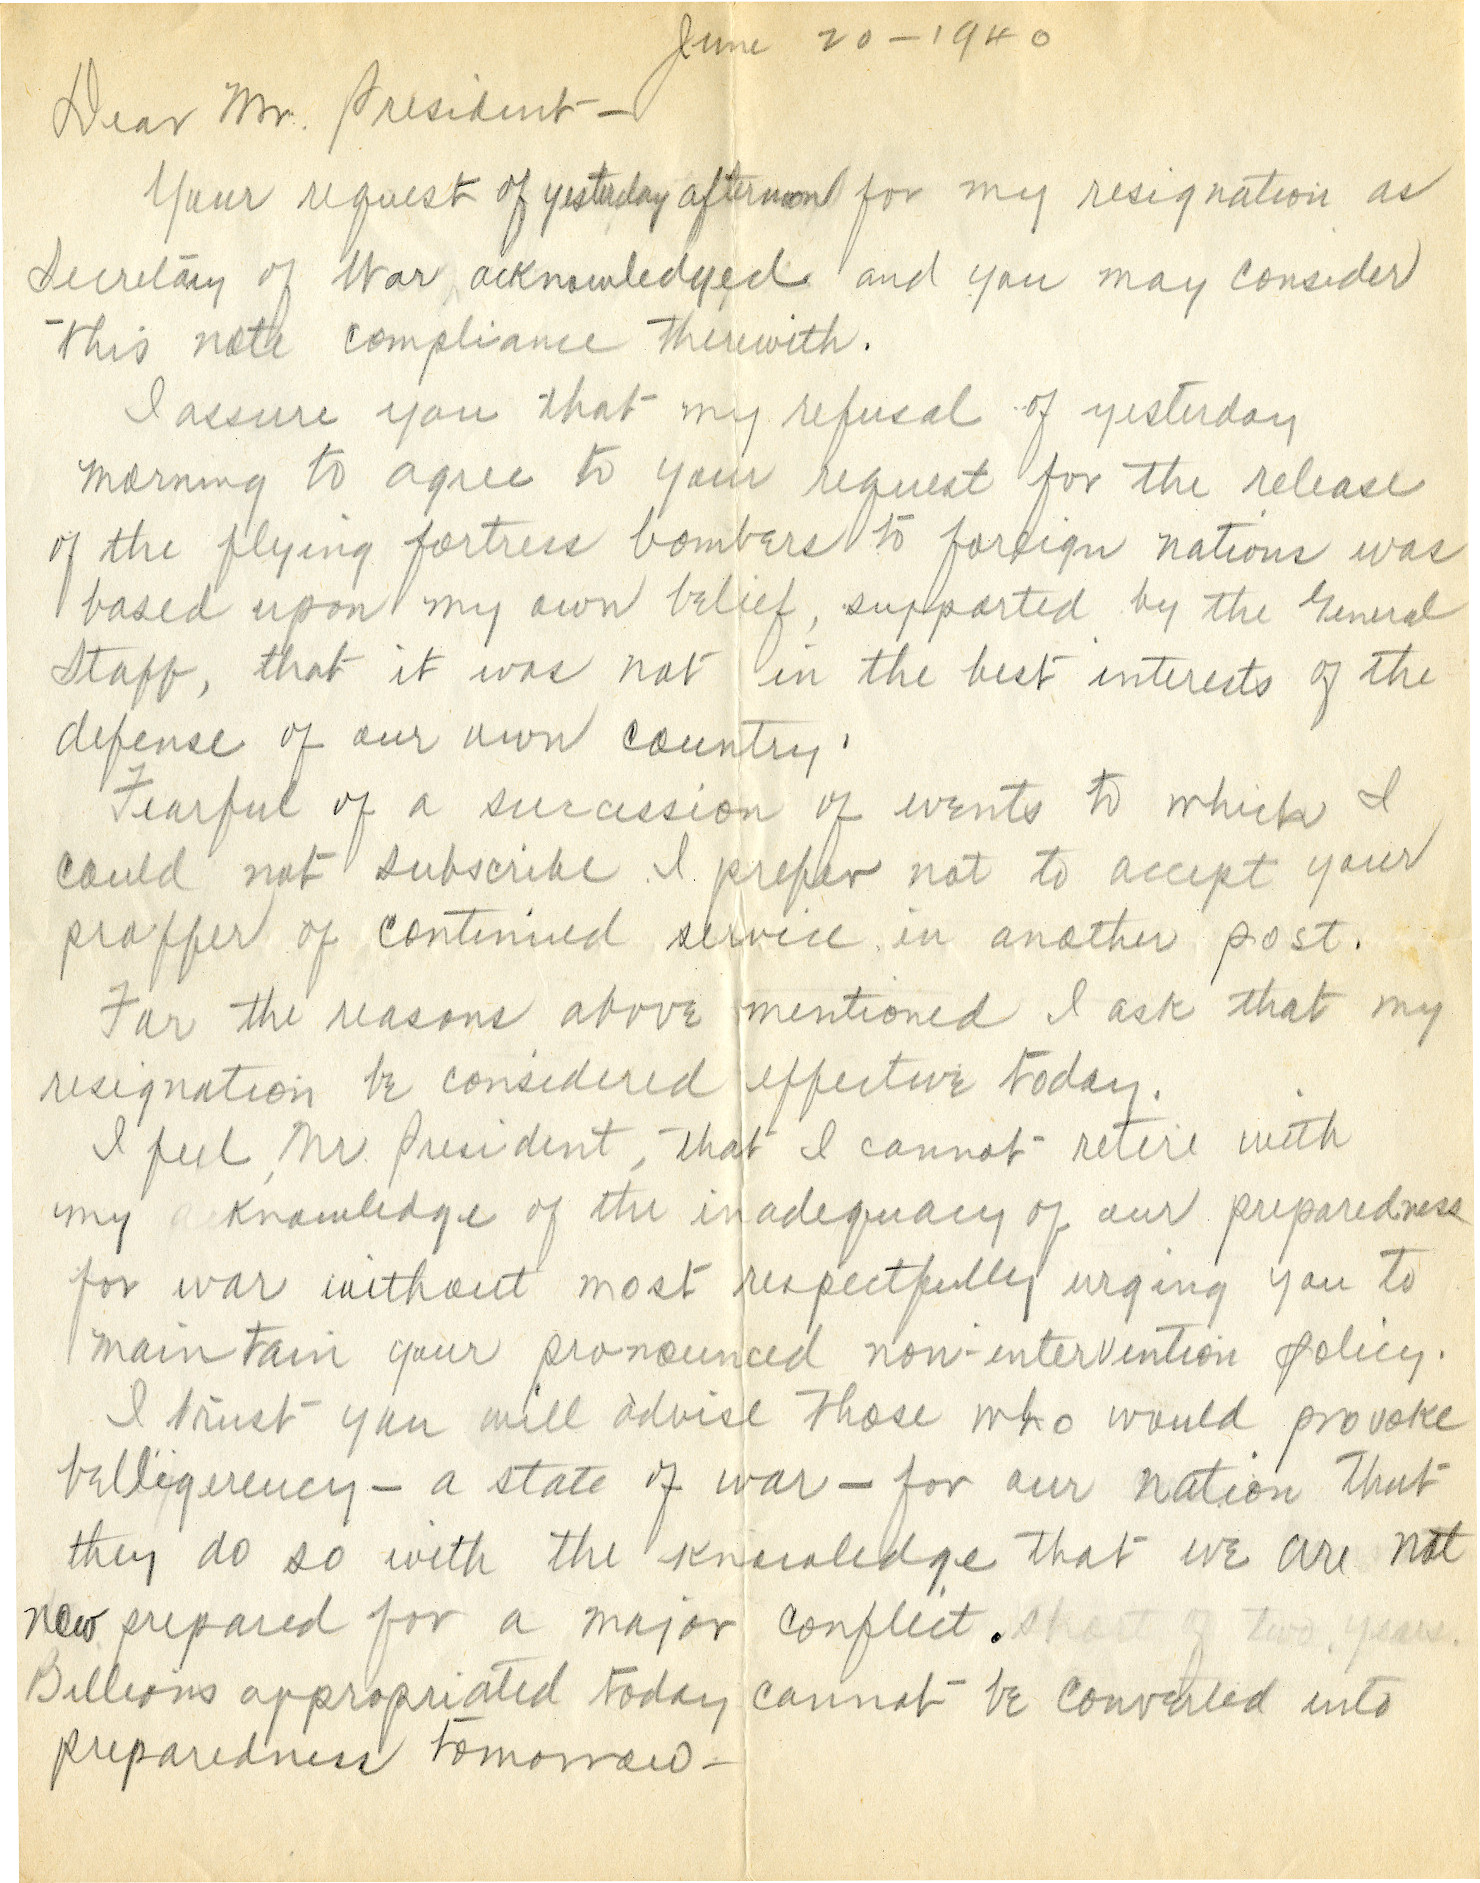 June 20-1940
Dear Mr. President-
Your request of yesterday afternoon for my resignation as
Secretary of War acknowledged and you may consider
this note compliance therewith.
I assure you that my refusal of yesterday
morning to agree to your request for the release
of the flying fortress bombers to foreign nations was
based upon my own belief, supported by the General
Staff, that it was not in the best interests of the
defense of our own country.
Fearful of a succession of events to which I
could not subscribe I prefer not to accept your
proffer of continued service in another post.
For the reasons above mentioned I ask that my
resignation be considered effective today.
I feel, Mr. President, that I cannot retire with
my knowledge of the inadequacy of our preparedness
for war without most respectfully urging you to
maintain your pronounced non-intervention policy.
I trust you will advise those who would provoke
belligerency - a state of war - for our nation that
they do so with the knowledge that we are not
now prepared for a major conflict. short of two years.
Billions appropriated today cannot be converted into
preparedness tomorrow-